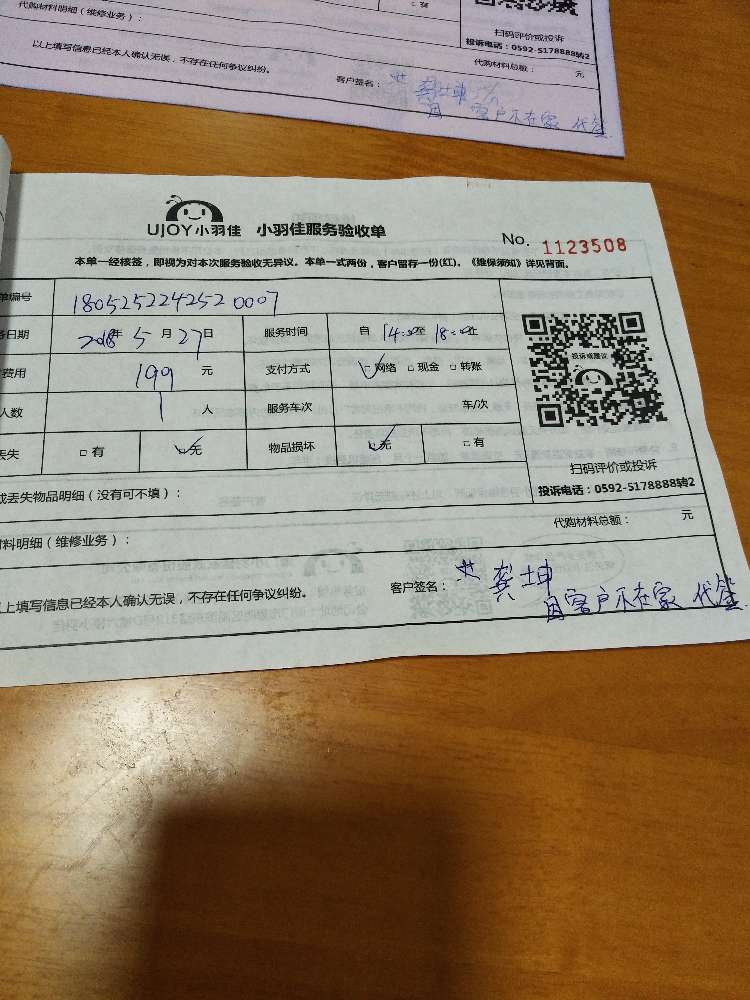 代购材料明细（维修业务）：
扫码评价或投诉
投诉电话：0592-5178888转2
代购材料总额： 元
以上填写信息已经本人确认无误，不存在任何争议纠纷。
客户签名：
因客户不在家 代签
UJOY小羽佳 小羽佳服务验收单
No. 1123508
本单一经核签，即视为对本次服务验收无异议。本单一式两份，客户留存一份(红)。《维保须知》详见背面。
单编号 180525224252 0007
务日期 2018年 5 月 27 日 服务时间 自 14:00至 18:00止
费用 199 元 支付方式 网络 现金 转账
人数 1 人 服务车次 车/次
丢失 有 无 物品损坏 无 有
投诉或建议
扫码评价或投诉
投诉电话：0592-5178888转2
或丢失物品明细（没有可不填）：
代购材料总额： 元
材料明细（维修业务）：
以上填写信息已经本人确认无误，不存在任何争议纠纷。
客户签名：
因客户不在家 代签